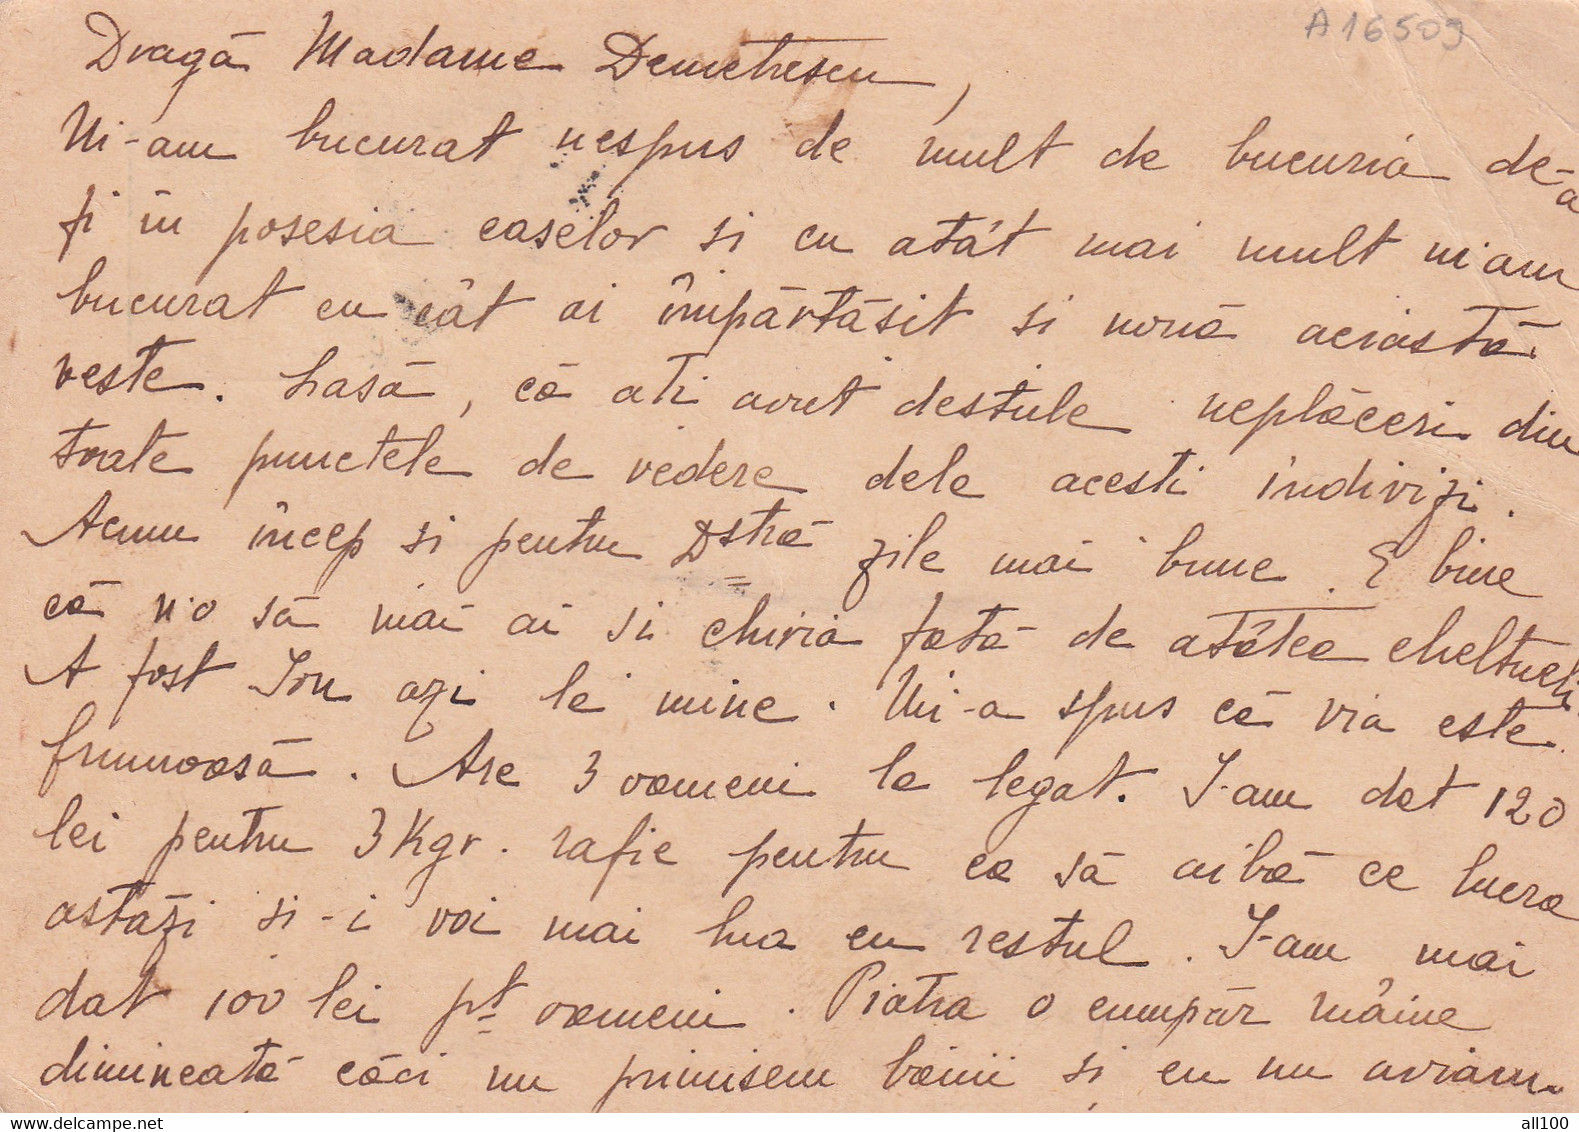 A16509
Dragă Madame Demetrescu,
Mi-am bucurat nespus de mult de bucuria de-a
fi în posesia caselor si cu atât mai mult m'am
bucurat cu cât ai împărtăsit si nouă aciastă
veste. Lasă, că ati avut destule neplăceri din
toate punctele de vedere dele acesti indivizi.
Acmu încep si pentru Dstră zile mai bune. E bine
că n'o să mai ai si chiria fată de atâtea cheltueli.
A fost Ion azi la mine. Mi-a spus că via este
frumoasă. Are 3 oameni la legat. I-am dat 120
lei pentru 3 Kgr. rafie pentru ca să aibă ce lucra
astăzi si-i voi mai lua cu restul. I-am mai
dat 100 lei pt oameni. Piatra o cumpăr mâine
dimineată căci nu primisem banii si eu nu aviam
all100